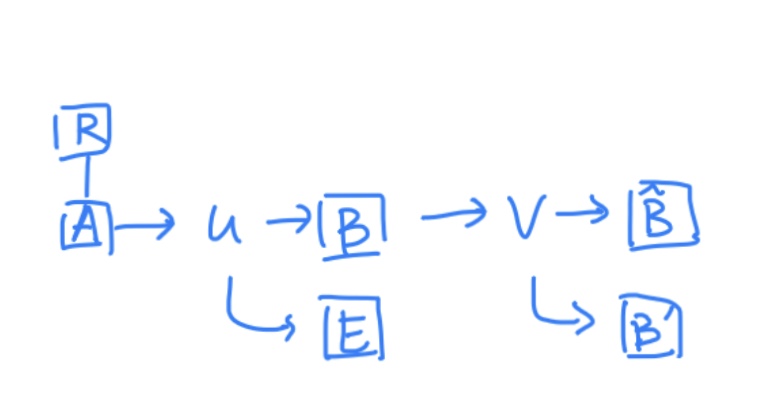 R
A → u → B → V → B̂
E B'